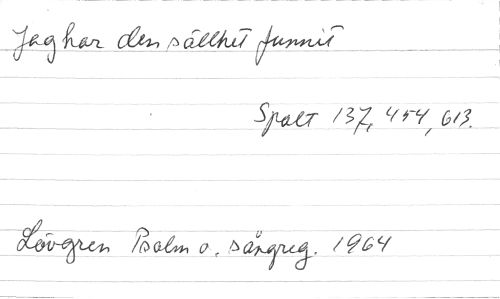 Jag har den sällhet funnit
Spalt 137, 454, 613.
Lövgren Psalm o. sångreg. 1964